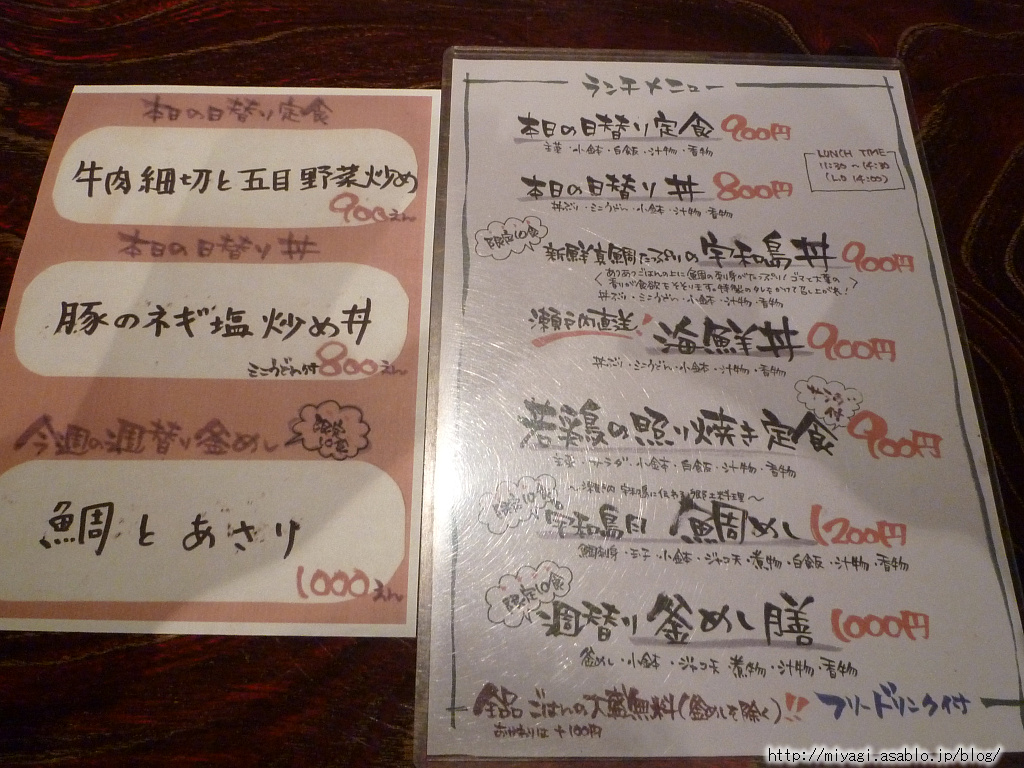 本日の日替り定食
牛肉細切と五目野菜炒め
900えん
本日の日替り丼
豚のネギ塩炒め丼
ミニうどん付 800えん
今週の週替り釜めし
限定10食
鯛とあさり
1000えん
ランチメニュー
本日の日替り定食 900円
主菜・小鉢・白飯・汁物・香物
LUNCH TIME
11:30~14:30
(L.O 14:00)
本日の日替り丼 800円
丼ぶり・ミニうどん・小鉢・汁物・香物
限定10食
新鮮真鯛たっぷりの宇和島丼 900円
あつあつごはんの上に鯛の刺身がたっぷり!ゴマと大葉の
香りが食欲をそそります。特製のタレをかけて召し上がれ!
丼ぶり・ミニうどん・小鉢・汁物・香物
瀬戸内直送! 海鮮丼 900円
丼ぶり・ミニうどん・小鉢・汁物・香物
若鶏の照り焼き定食 900円
主菜・サラダ・小鉢・白飯・汁物・香物
宇和島に伝わる郷土料理~
限定10食
宇和島風 鯛めし 1200円
鯛刺身・玉子・小鉢・ジャコ天・煮物・白飯・汁物・香物
限定10食
週替り釜めし膳 1000円
釜めし・小鉢・ジャコ天・煮物・汁物・香物
全品ごはんの大盛無料(釜めしを除く)!! フリードリンク付
おかわりは+100円
http://miyagi.asablo.jp/blog/